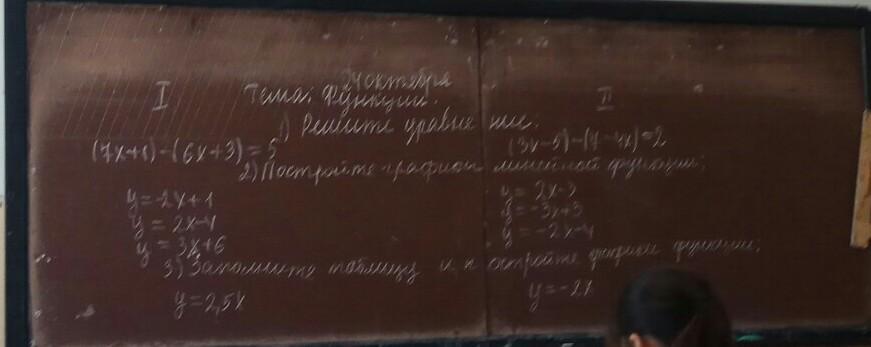 24 октября
I Тема: Функции. II
1) Решите уравнение:
(7x+1)-(6x+3)=5 (3x-5)-(7-4x)=2
2) Постройте графики линейной функции;
y=-2x+1 y= 2x-3
y= 2x-4 y=-3x+3
y= 3x+6 y=-2x-4
3) Заполните таблицу и постройте графики функции;
y=2,5x y=-2x